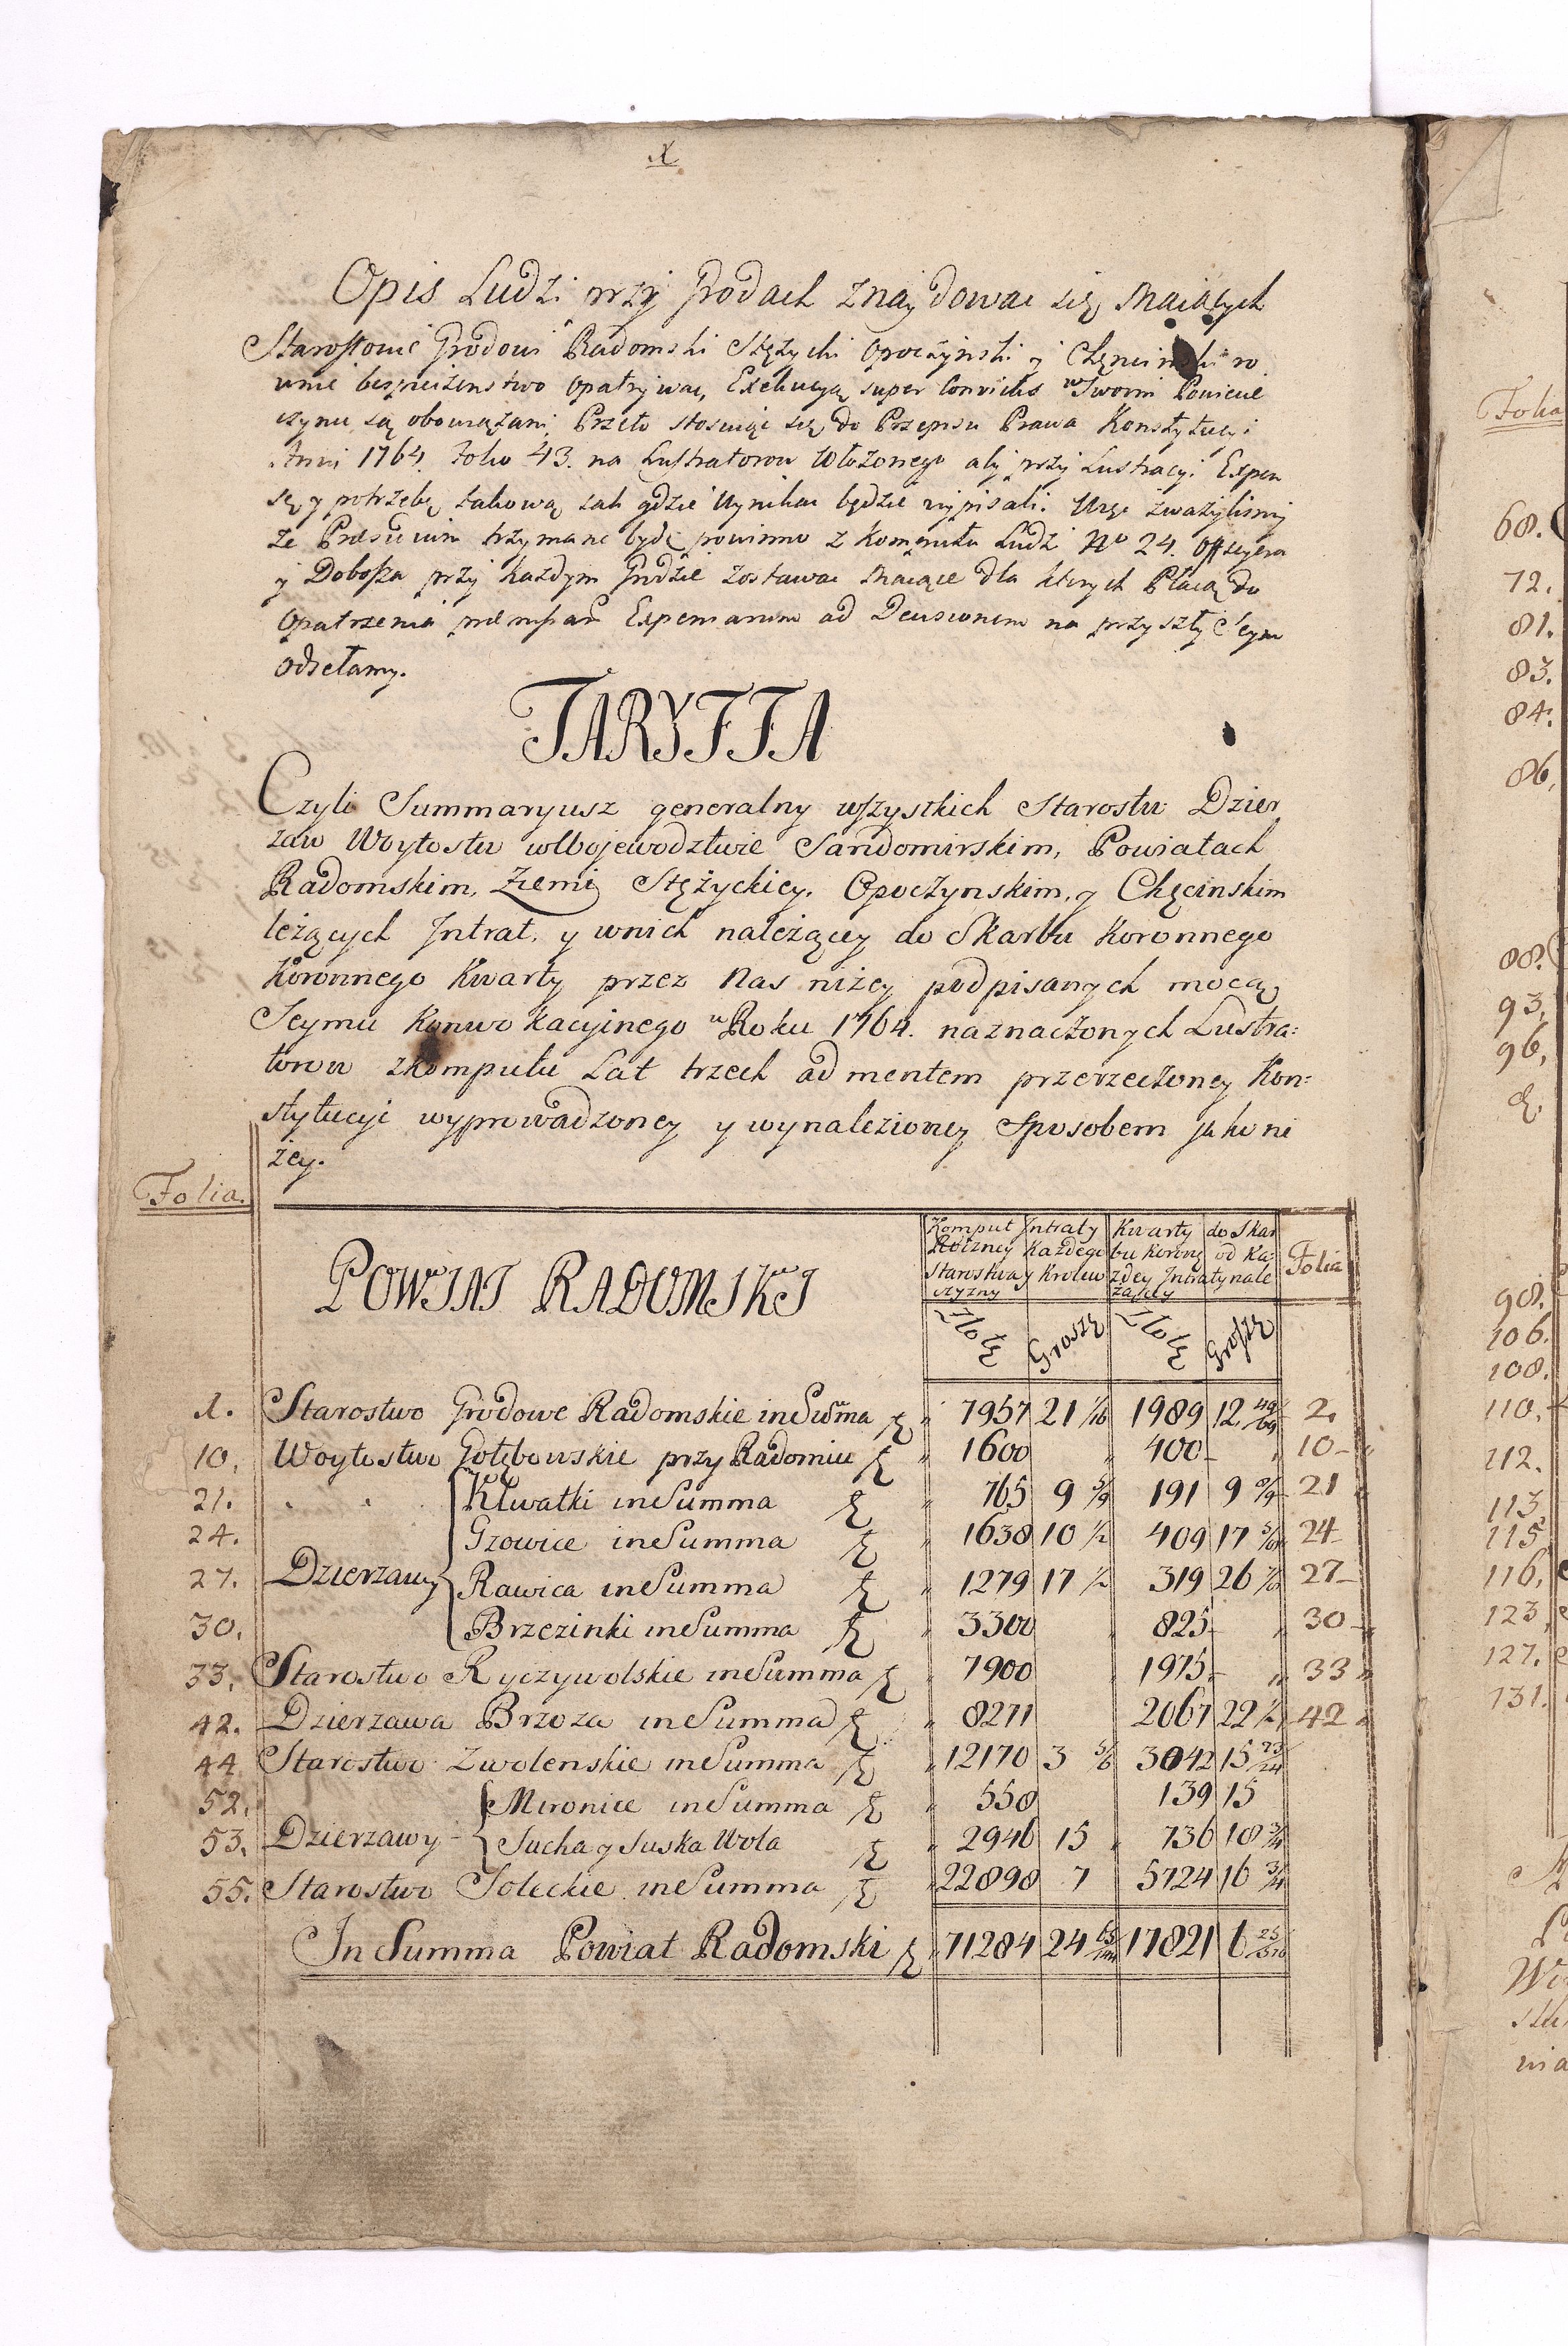 X
Opis Ludzi przy Grodach znaydowac się Maiących
Starostowie Grodowi Radomski Stężycki Opoczynski y Chęcinski ro
wnie beśpieczenstwo opatrywac, Exekucyą super Convictis w Swoim Powiecie
czynic są obowiązani, Przeto stosuiąc się do Przepisu Prawa Konstytucyi
Anni 1764. Folio 43. na Lustratorow Włożonego aby przy Lustracyi Expen
sę y potrzebę takową iak gdzie Wynikac będzie wypisali.
że Presidium trzymane bydź powinno z Komputu Ludzi No 24. Officyera
y Dobosza przy każdym Grodzie zostawac Maiące dla ktorych Płacą do
Opatrzenia Expensarum ad Decisionem na przyszły Seym
Odsełamy.
TARYFFA
Czyli Summaryusz generalny wszystkich Starostw Dzier
zaw Woytostw w Woiewodztwie Sandomirskim, Powiatach
Radomskim, Ziemi Stężyckiey, Opoczynskim, y Chęcinskim
leżących Jntrat, y wnich należącey do Skarbu Koronnego
Koronnego Kwarty przez Nas niżey podpisanych mocą
Seymu Konwokacyinego w Roku 1764. naznaczonych Lustra:
torow zkomputu Lat trzech ad mentem przerzeczoney Kon:
stytucyi wyprowadzoney y wynalezioney Sposobem jako ni
zey.
Folia.
POWIAT RADOMSKI
Komput Jntraty Kwarty do Skar
Roczney Każdego bu Koronę od Ka:
Starostwa y Krolew zdey Jntraty nale
czyzny żącey
Folia
Złotę Groszę Złotę Groszę
1. Starostwo Grodowe Radomskie in Suma 7957 21 1/10 1989 12 49/69 2.
10. Woytostwo Gołębowskie przy Radomiu 1600 400 10
21. Klwatki in Summa 765 9 5/9 191 9 8/9 21
24. Gzowice in Summa 1638 10 1/2 409 17 5/8 24
27. Dzierzawy Rawica in Summa 1279 17 1/2 319 26 7/8 27
30. Brzezinki in Summa 3300 825 30
33. Starostwo Ryczywolskie in Summa 7900 1975 33
42. Dzierzawa Brzoza in Summa 8271 2067 22 1/2 42
44 Starostwo Zwolenskie in Summa 12170 3 5/6 3042 15 23/24
52. Mironice in Summa 558 139 15
53. Dzierzawy Sucha y Suska Wola 2946 15 736 18 3/4
55. Starostwo Soleckie in Summa 22898 7 5724 16 3/4
In Summa Powiat Radomski 71284 24 17821 6
Folia
68.
72.
81.
83.
84.
86.
88.
93.
96.
98.
106.
108.
110.
112.
113
115
116.
123
127.
131.